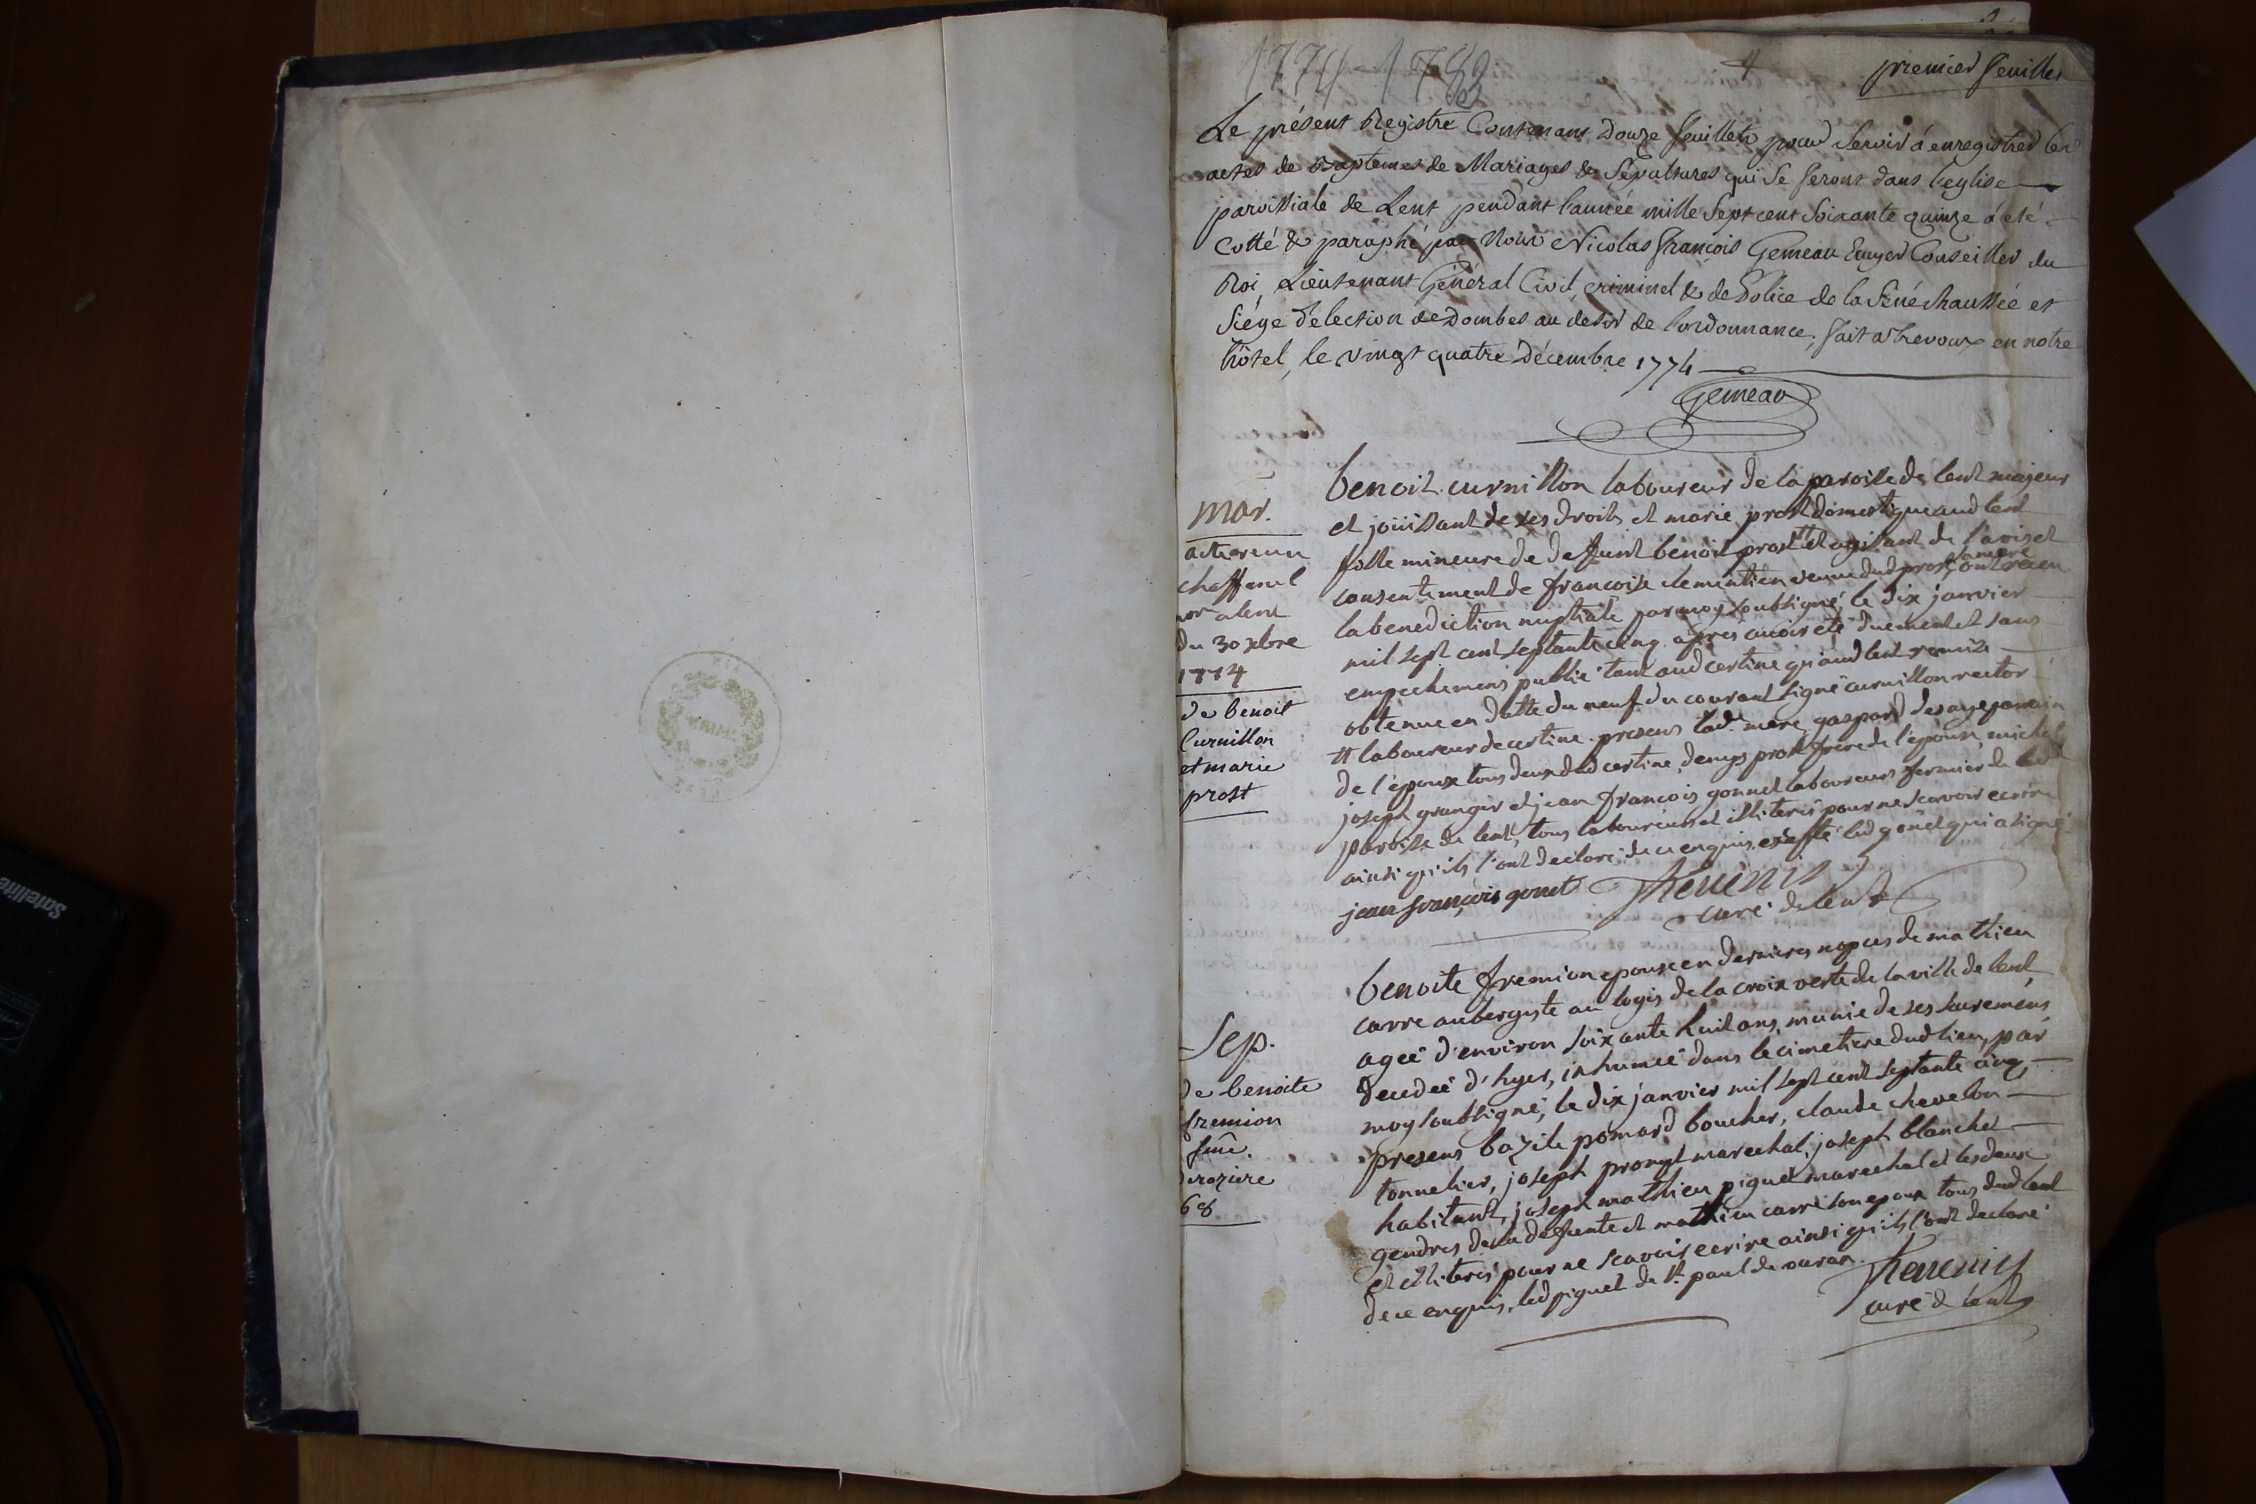 1774-1783
premier feuillet
Le présent Registre Contenant Douze feuillets pour Servir à enregistrer les
actes de Baptemes de Mariages & Sépultures qui se feront dans l'eglise
paroissiale de Lent pendant l'année mille Sept cent Soixante quinze a eté
Cotté & paraphé par Nous Nicolas françois Gemeau Ecuyer Conseiller du
Roi Lieutenant Général Civil, criminel & de Police de la Sénéchaussée et
Siége d'election de Dombes au desir de l'ordonnance, fait a Trevoux en notre
hôtel, le vingt quatre Décembre 1774
Gemeau
mar.
acte
chaffoul
a lent
du 30 xbre
1774
de benoit
Curnillon
et marie
prost
benoit curnillon laboureur de la paroisse de lent majeur
et joüissant de ses droits et marie prost domestique aud lent
fille mineure de deffunt benoit prost # et agissant de l'avis et
consentement de francoise clementien veuve dud prost, sa mere ont recu
la benediction nuptiale par moy soubsigné, le dix janvier
mil sept cent septante cinq apres avoir été duement et sans
empechemens publié tant aud certine qu'aud lent remise
obtenue en datte du neuf du courant signé curnillon rector
# laboureur de certine. presens lad. mere, gaspard desaye parrain
de l'epouse tous deux dud certine, denys prost frere de l'epouse, michel
joseph granger et jean francois gonnet laboureurs fermier de lad
paroisse de lent, tous laboureurs et illiteres pour ne scavoir ecrire
ainsi qu'ils l'ont declaré de ce enquis, excepté led gonet qui a signé
jean françois gonet Thevenin
curé de lent
Sep.
de benoite
fremion
fme.
carre
68
benoite fremion epouse en dernieres nopces de mathieu
carre aubergiste au logis de la croix verte de la ville de lent
agée d'environ soixante huit ans, munie de ses sacremens
decedée d'hyer, inhumée dans le cimetiere dud lieu, par
moy soubsigné, le dix janvier mil sept cent septante cinq
presens bazile pomard boucher, claude chevelon
tonnelier, joseph promyt marechal, joseph blanchet
habitant, joseph mathieu piguet marechal et les deux
gendres de la deffunte et mathieu carre son epoux tous dud lent
et illiteres pour ne scavoir ecrire ainsi qu'ils l'ont declaré
de ce enquis, led piguet de st. paul de varax.
Thevenin
curé de lent
Satellite